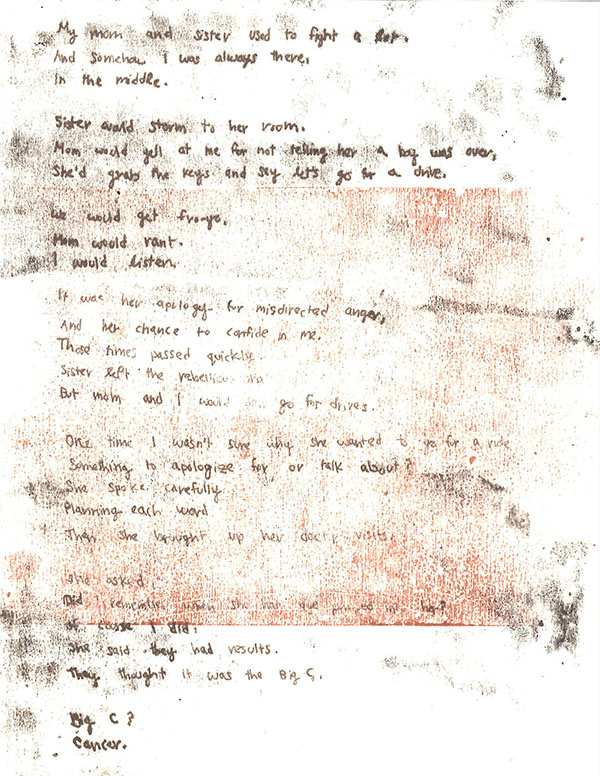 My mom and sister used to fight a lot.
And somehow I was always there,
In the middle.
Sister would storm to her room.
Mom would yell at me for not telling her a boy was over,
She'd grab the keys and say let's go for a drive.
We would get fro-yo,
Mom would rant.
I would listen.
It was her apology for misdirected anger,
And her chance to confide in me.
Those times passed quickly.
Sister left the rebellious
But mom and I would go for drives.
One time I wasn't sure why she wanted to go for a ride
Something to apologize for or talk about?
She spoke carefully
Planning each word
Then she brought up her doctor visits.
She asked
Did I remember when she had in her?
Of I did.
She said they had results.
They thought it was the Big C.
Big C?
Cancer.